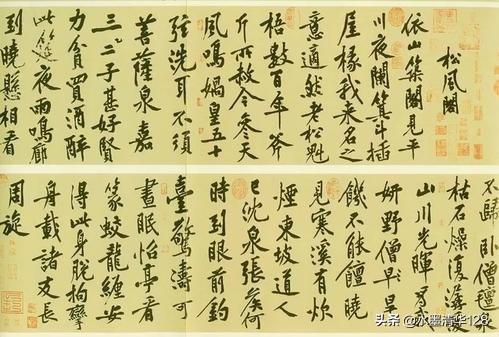 松風閣
依山築閣見平
川夜闌箕斗插
屋椽我來名之
意適然老松魁
梧數百年斧
斤所赦今參天
風鳴媧皇五十
弦洗耳不須
菩薩泉嘉
三二子甚好賢
力貧買酒醉
此筵夜雨鳴廊
到曉懸相看
不歸臥僧氈泉
枯石燥復潺湲
山川光暉為我
妍野僧旱
飢不能饘曉
見寒溪有炊
煙東坡道人
已沈泉張侯何
時到眼前釣
臺驚濤可
晝眠怡亭看
篆蛟龍纏安
得此身脫拘攣
舟載諸友長
周旋
头条 @水墨清华128